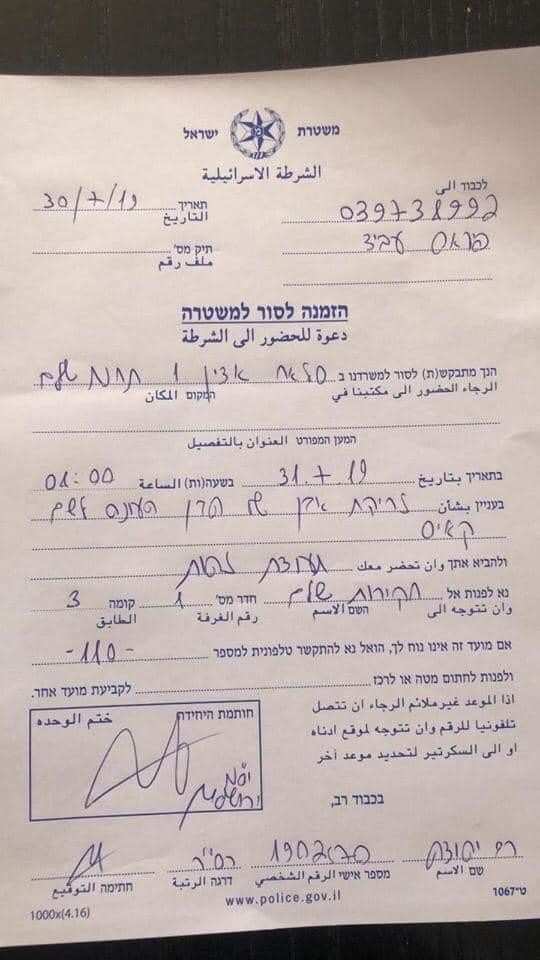 משטרת ישראל
الشرطة الاسرائيلية
לכבוד الى
039738992
תאריך 30/7/19
التاريخ
פראס עביד
תיק מס'
ملف رقم
הזמנה לסור למשטרה
دعوة للحضور الى الشرطة
הנך מתבקש(ת) לסור למשרדנו ב סלאח אדין 1 תחנת שלם
الرجاء الحضور الى مكتبنا في המקום المكان
המען המפורט العنوان بالتفصيل
בתאריך بتاريخ 31.7.19 בשעה(ות) الساعة 08:00
בעניין بشأن זריקת אבן של הבן העונה לשם
קאיס
ולהביא אתך وان تحضر معك תעודת זהות
נא לפנות אל חקירות שלם חדר מס' 1 קומה 3
وان تتوجه الى השם الاسم رقم الغرفة الطابق
אם מועד זה אינו נוח לך, הואל נא להתקשר טלפונית למספר -110-
ולפנות לחתום מטה או לרכז לקביעת מועד אחר.
اذا الموعد غير ملائم الرجاء ان تتصل
تلفونيا للرقم وان تتوجه لموقع ادناه
او الى السكرتير لتحديد موعد آخر
חותמת היחידה ختم الوحده
ירושלים
בכבוד רב,
רס"ר
שם الاسم מספר אישי الرقم الشخصي דרגה الرتبة חתימה التوقيع
www.police.gov.il
ט"1067
1000x(4.16)